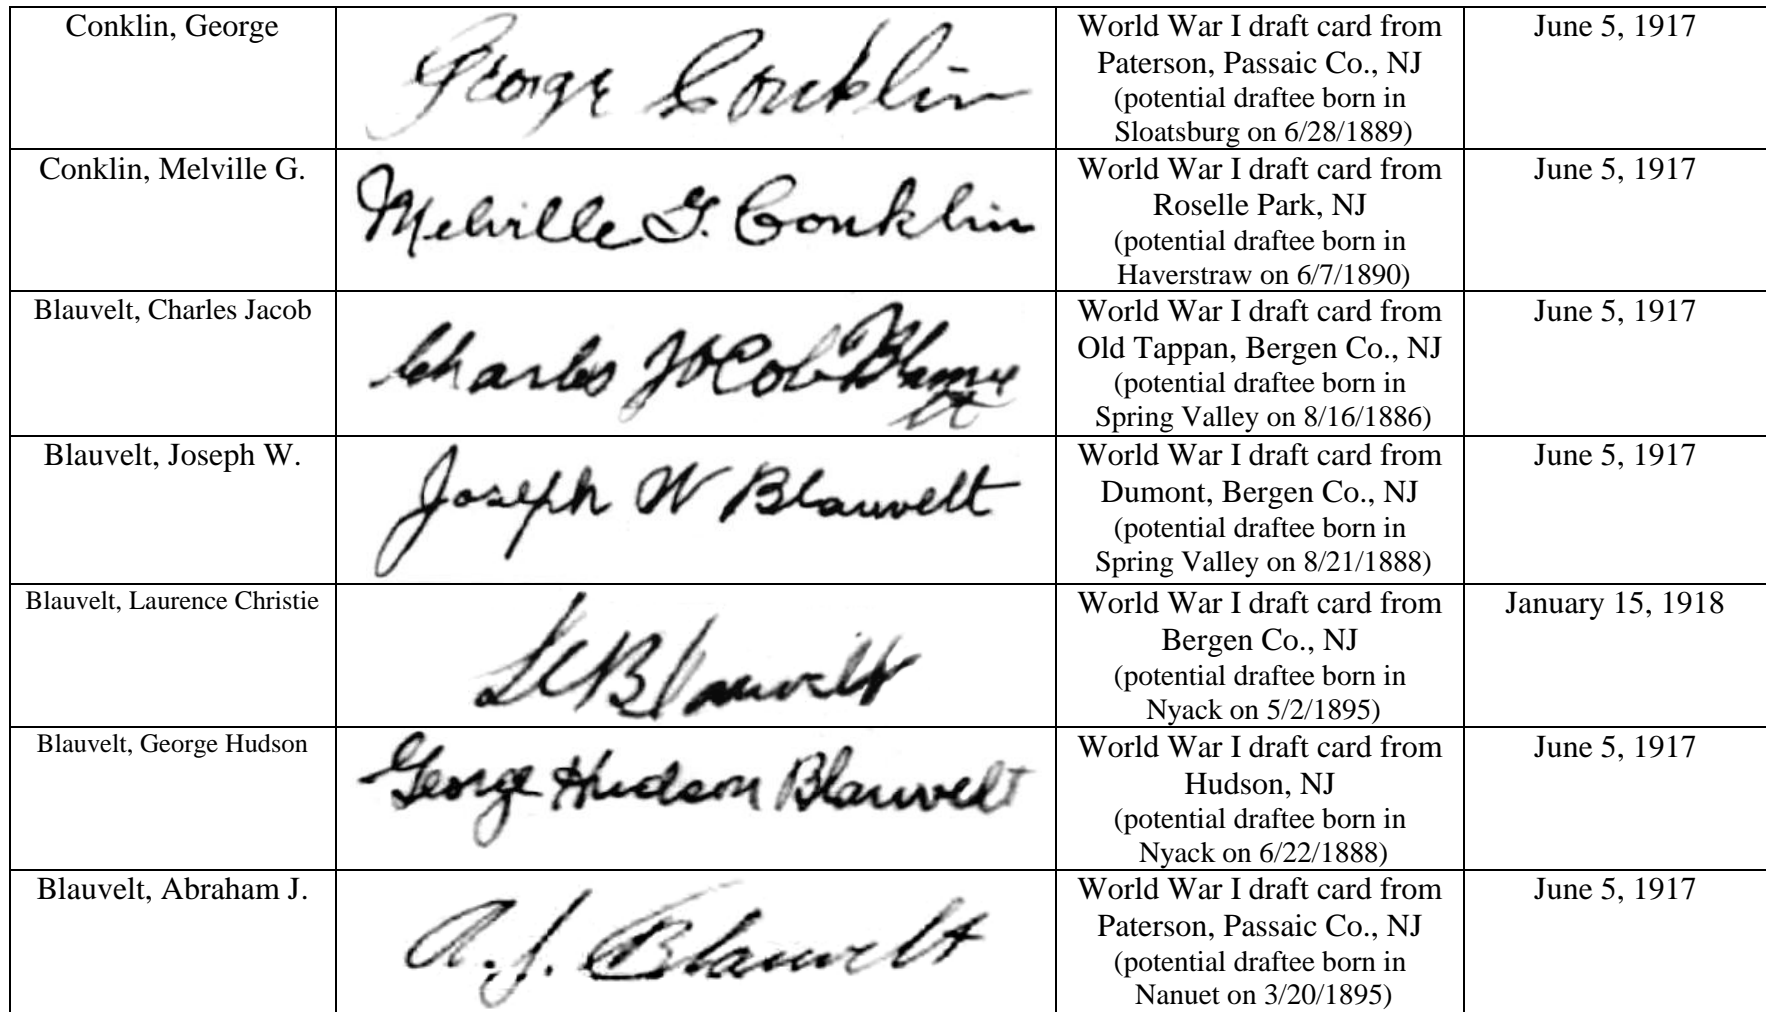 Conklin, George
George Conklin
World War I draft card from
Paterson, Passaic Co., NJ
(potential draftee born in
Sloatsburg on 6/28/1889)
June 5, 1917
Conklin, Melville G.
Melville G. Conklin
World War I draft card from
Roselle Park, NJ
(potential draftee born in
Haverstraw on 6/7/1890)
June 5, 1917
Blauvelt, Charles Jacob
Charles Jacob Blauvelt
World War I draft card from
Old Tappan, Bergen Co., NJ
(potential draftee born in
Spring Valley on 8/16/1886)
June 5, 1917
Blauvelt, Joseph W.
Joseph W Blauvelt
World War I draft card from
Dumont, Bergen Co., NJ
(potential draftee born in
Spring Valley on 8/21/1888)
June 5, 1917
Blauvelt, Laurence Christie
LCBlauvelt
World War I draft card from
Bergen Co., NJ
(potential draftee born in
Nyack on 5/2/1895)
January 15, 1918
Blauvelt, George Hudson
George Hudson Blauvelt
World War I draft card from
Hudson, NJ
(potential draftee born in
Nyack on 6/22/1888)
June 5, 1917
Blauvelt, Abraham J.
A. J. Blauvelt
World War I draft card from
Paterson, Passaic Co., NJ
(potential draftee born in
Nanuet on 3/20/1895)
June 5, 1917